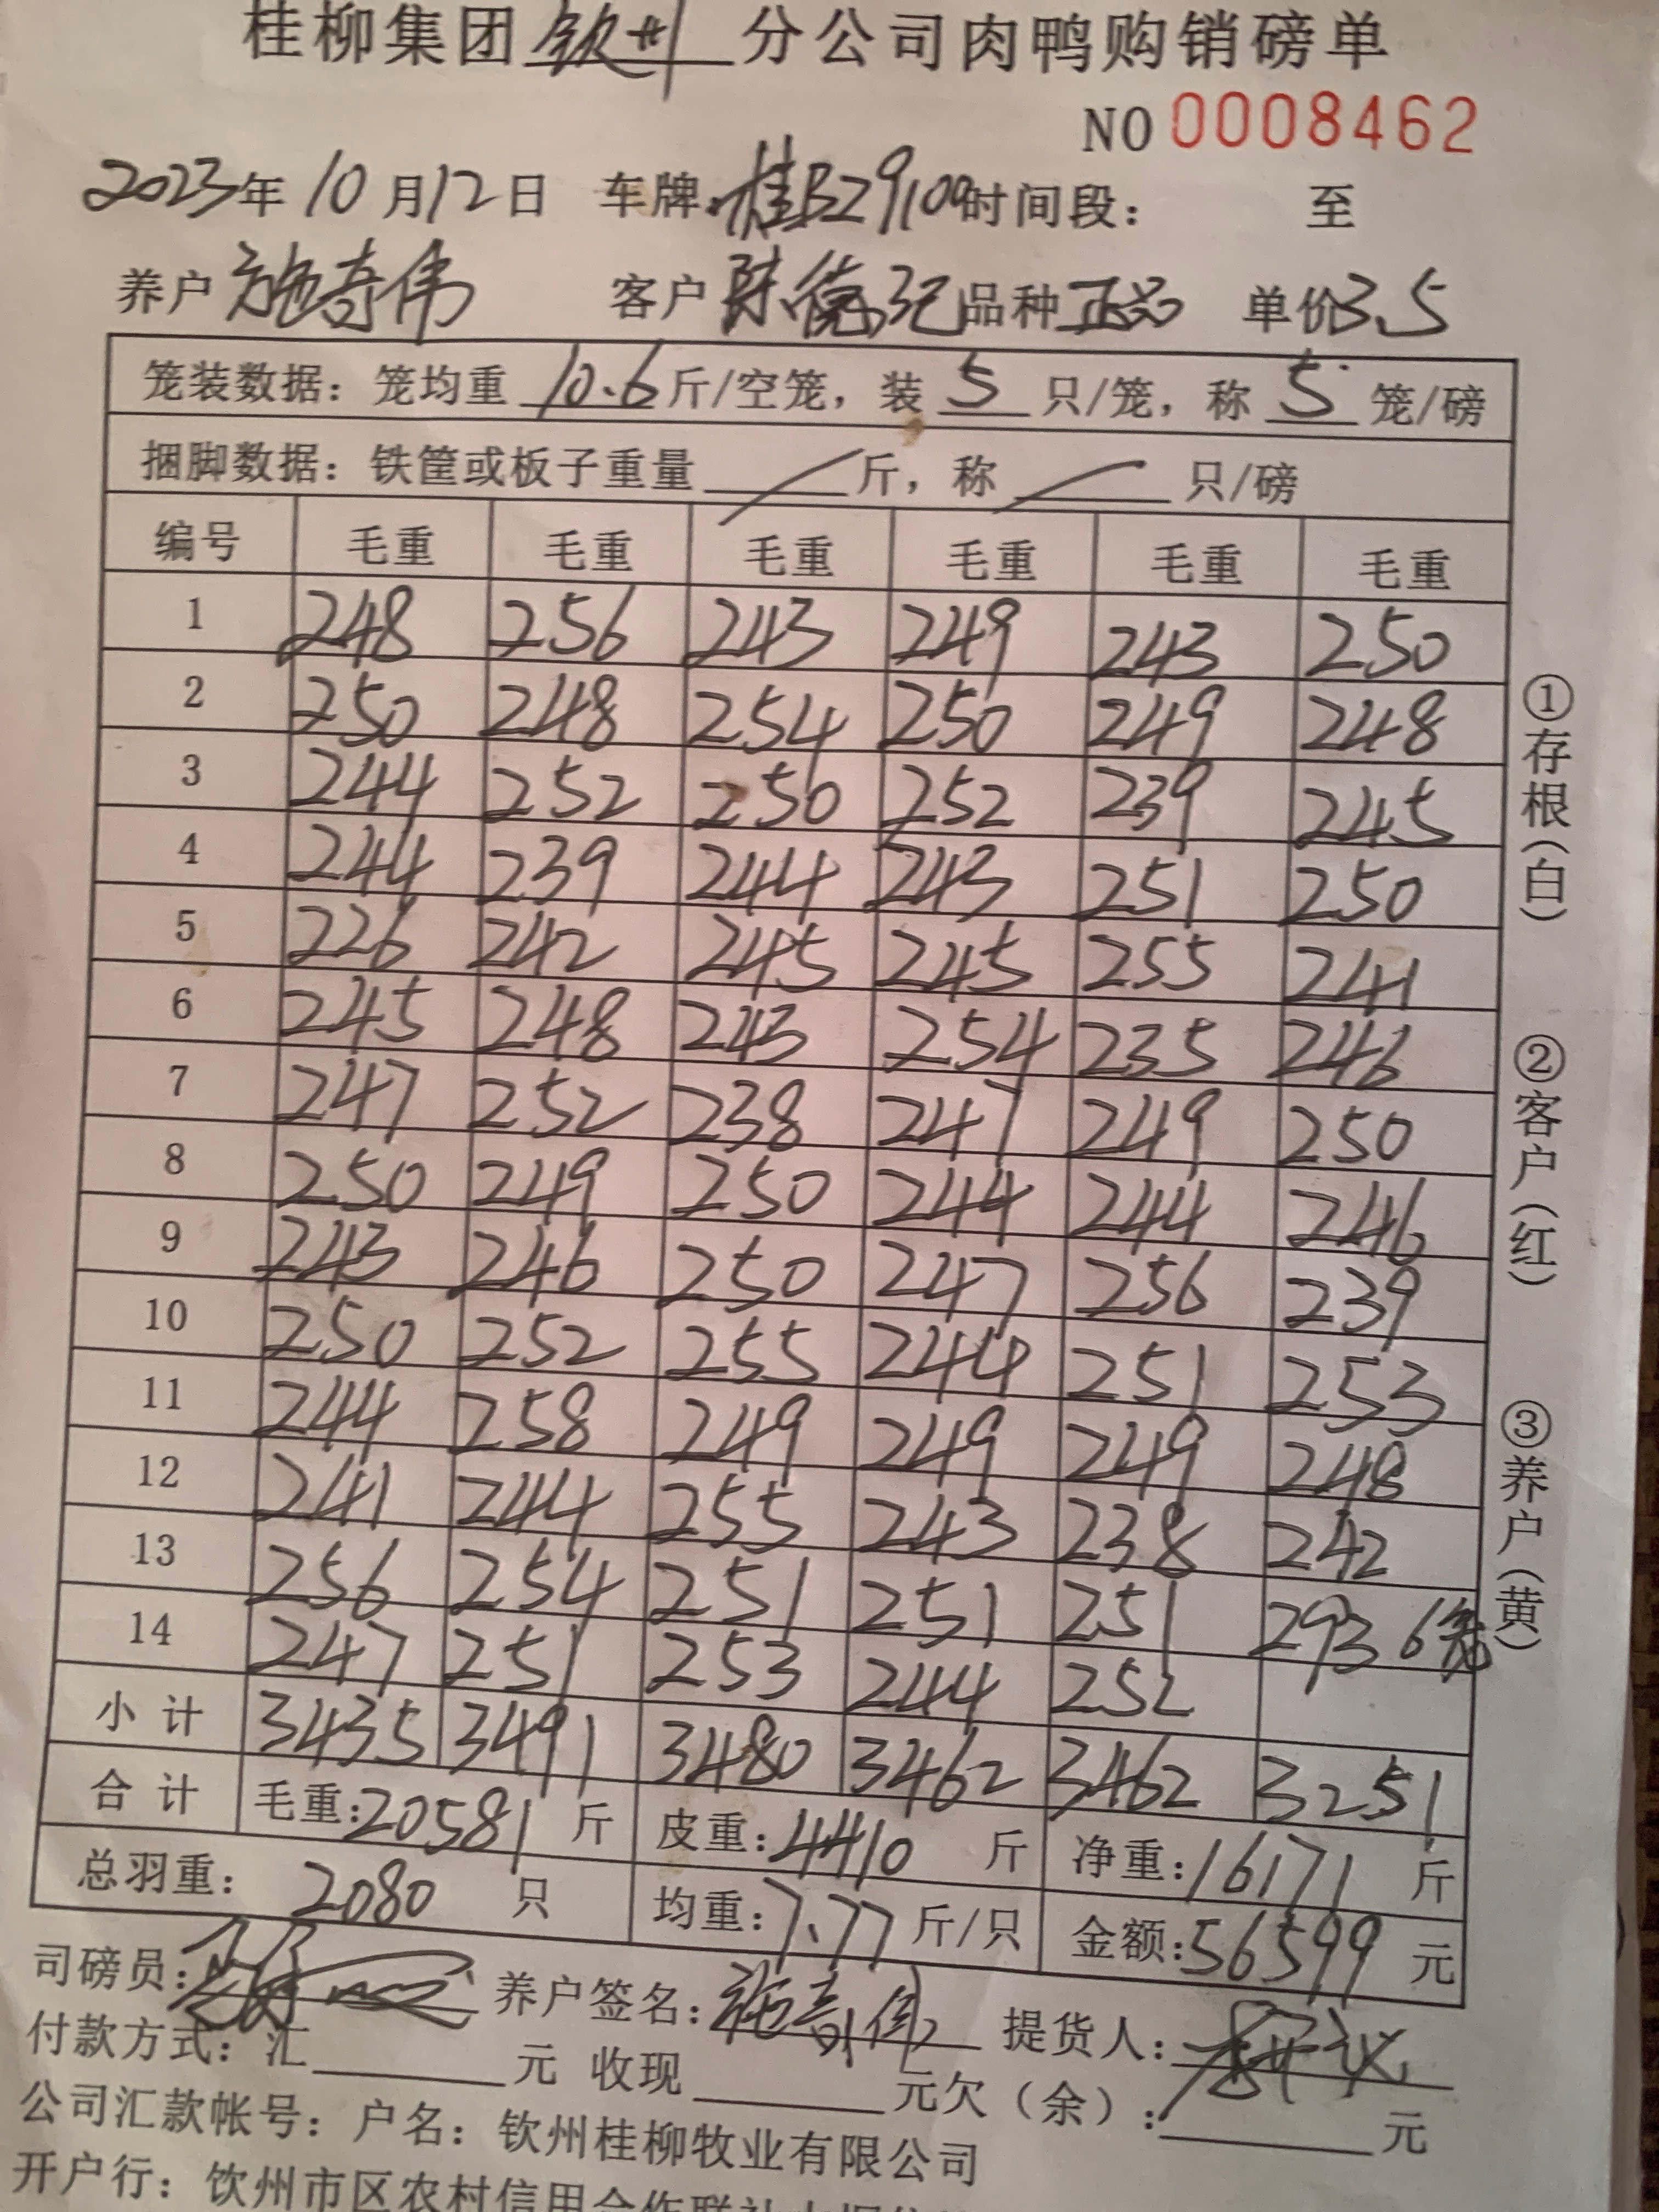 桂柳集团钦州分公司肉鸭购销磅单
NO 0008462
2023年10月12日 车牌:桂BZ9100时间段: 至
养户 施奇伟 客户 陈德记 品种 正品 单价3.5
笼装数据:笼均重 10.6 斤/空笼,装 5 只/笼,称 5 笼/磅
捆脚数据:铁筐或板子重量 / 斤,称 / 只/磅
编号 毛重 毛重 毛重 毛重 毛重 毛重
1 248 256 243 249 243 250
2 250 248 254 250 249 248
3 244 252 250 252 239 245
4 244 239 244 243 251 250
5 226 242 245 245 255 241
6 245 248 243 254 235 246
7 247 252 238 247 249 250
8 250 249 250 244 244 246
9 243 246 250 247 256 239
10 250 252 255 244 251 253
11 244 258 249 249 249 248
12 241 244 255 243 238 242
13 256 254 251 251 251 293 6笼
14 247 251 253 244 252
小计 3435 3491 3480 3462 3462 3251
合计 毛重:20581 斤 皮重:4410 斤 净重:16171 斤
总羽重: 2080 只 均重:7.77 斤/只 金额:56599 元
司磅员: 养户签名:施奇伟 提货人:
付款方式:汇 元 收现 元欠(余): 元
公司汇款帐号:户名:钦州桂柳牧业有限公司
开户行:钦州市区农村信用合作联社
①存根(白)
②客户(红)
③养户(黄)